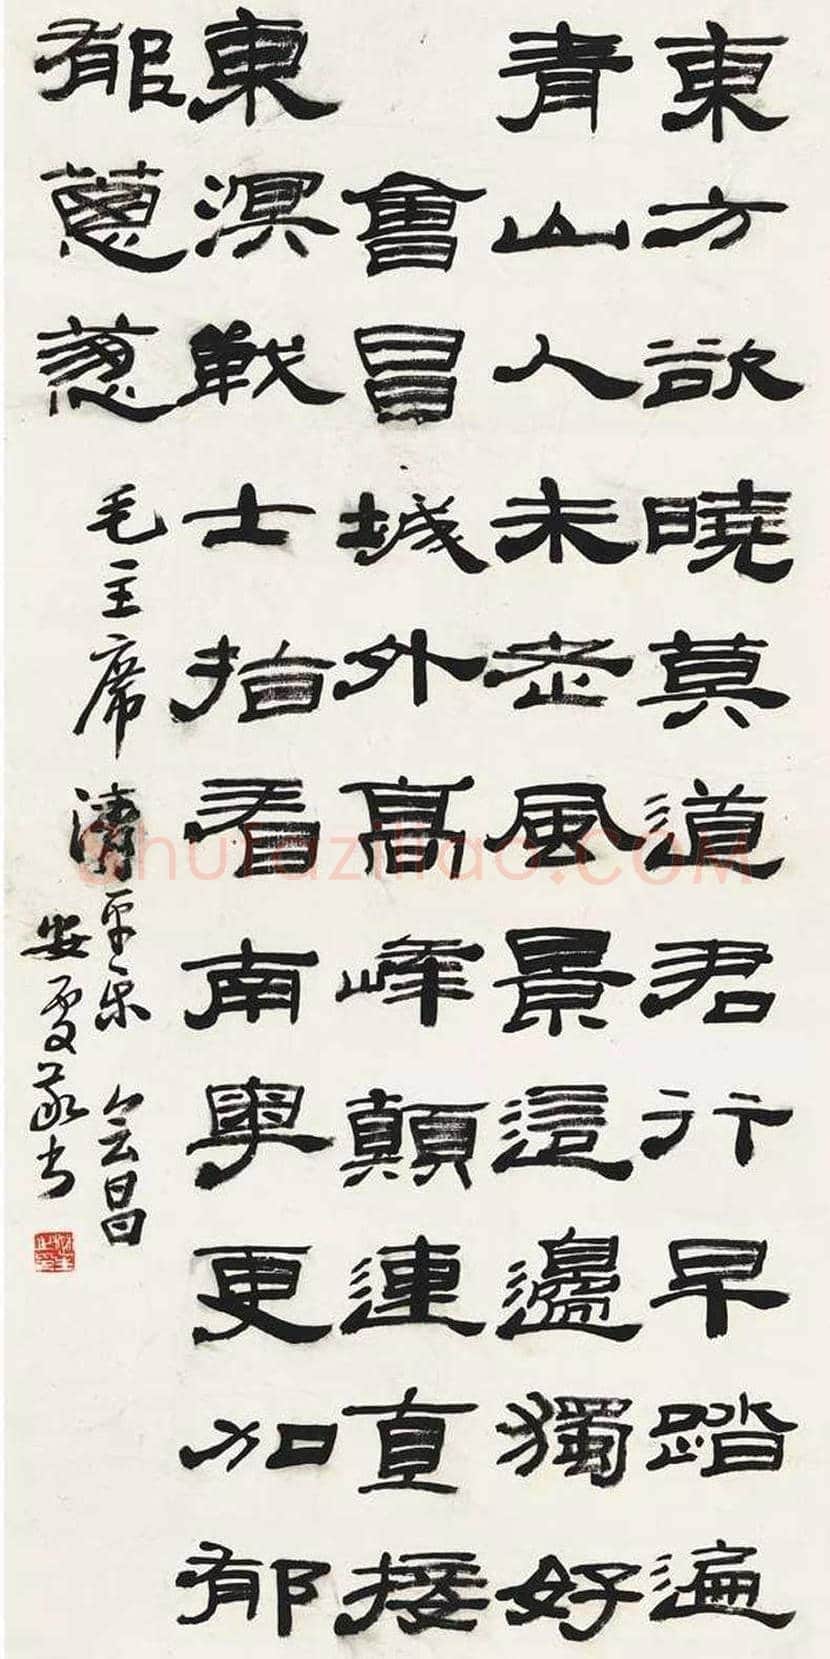 東方欲曉莫道君行早踏遍
青山人未老風景這邊獨好
會昌城外高峰顛連直接
東溟戰士指看南粵更加郁
郁蔥蔥
毛主席清平乐会昌
安敬书
Shufaziliao.COM